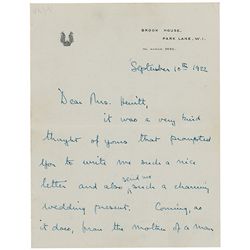 BROOK HOUSE,
PARK LANE, W.1.
September 10th 1922
Dear Mrs. Hewitt,
it was a very kind
thought of yours that prompted
you to write me such a nice
letter and also send me such a charming
wedding present. Coming, as
it does, from the mother of a man